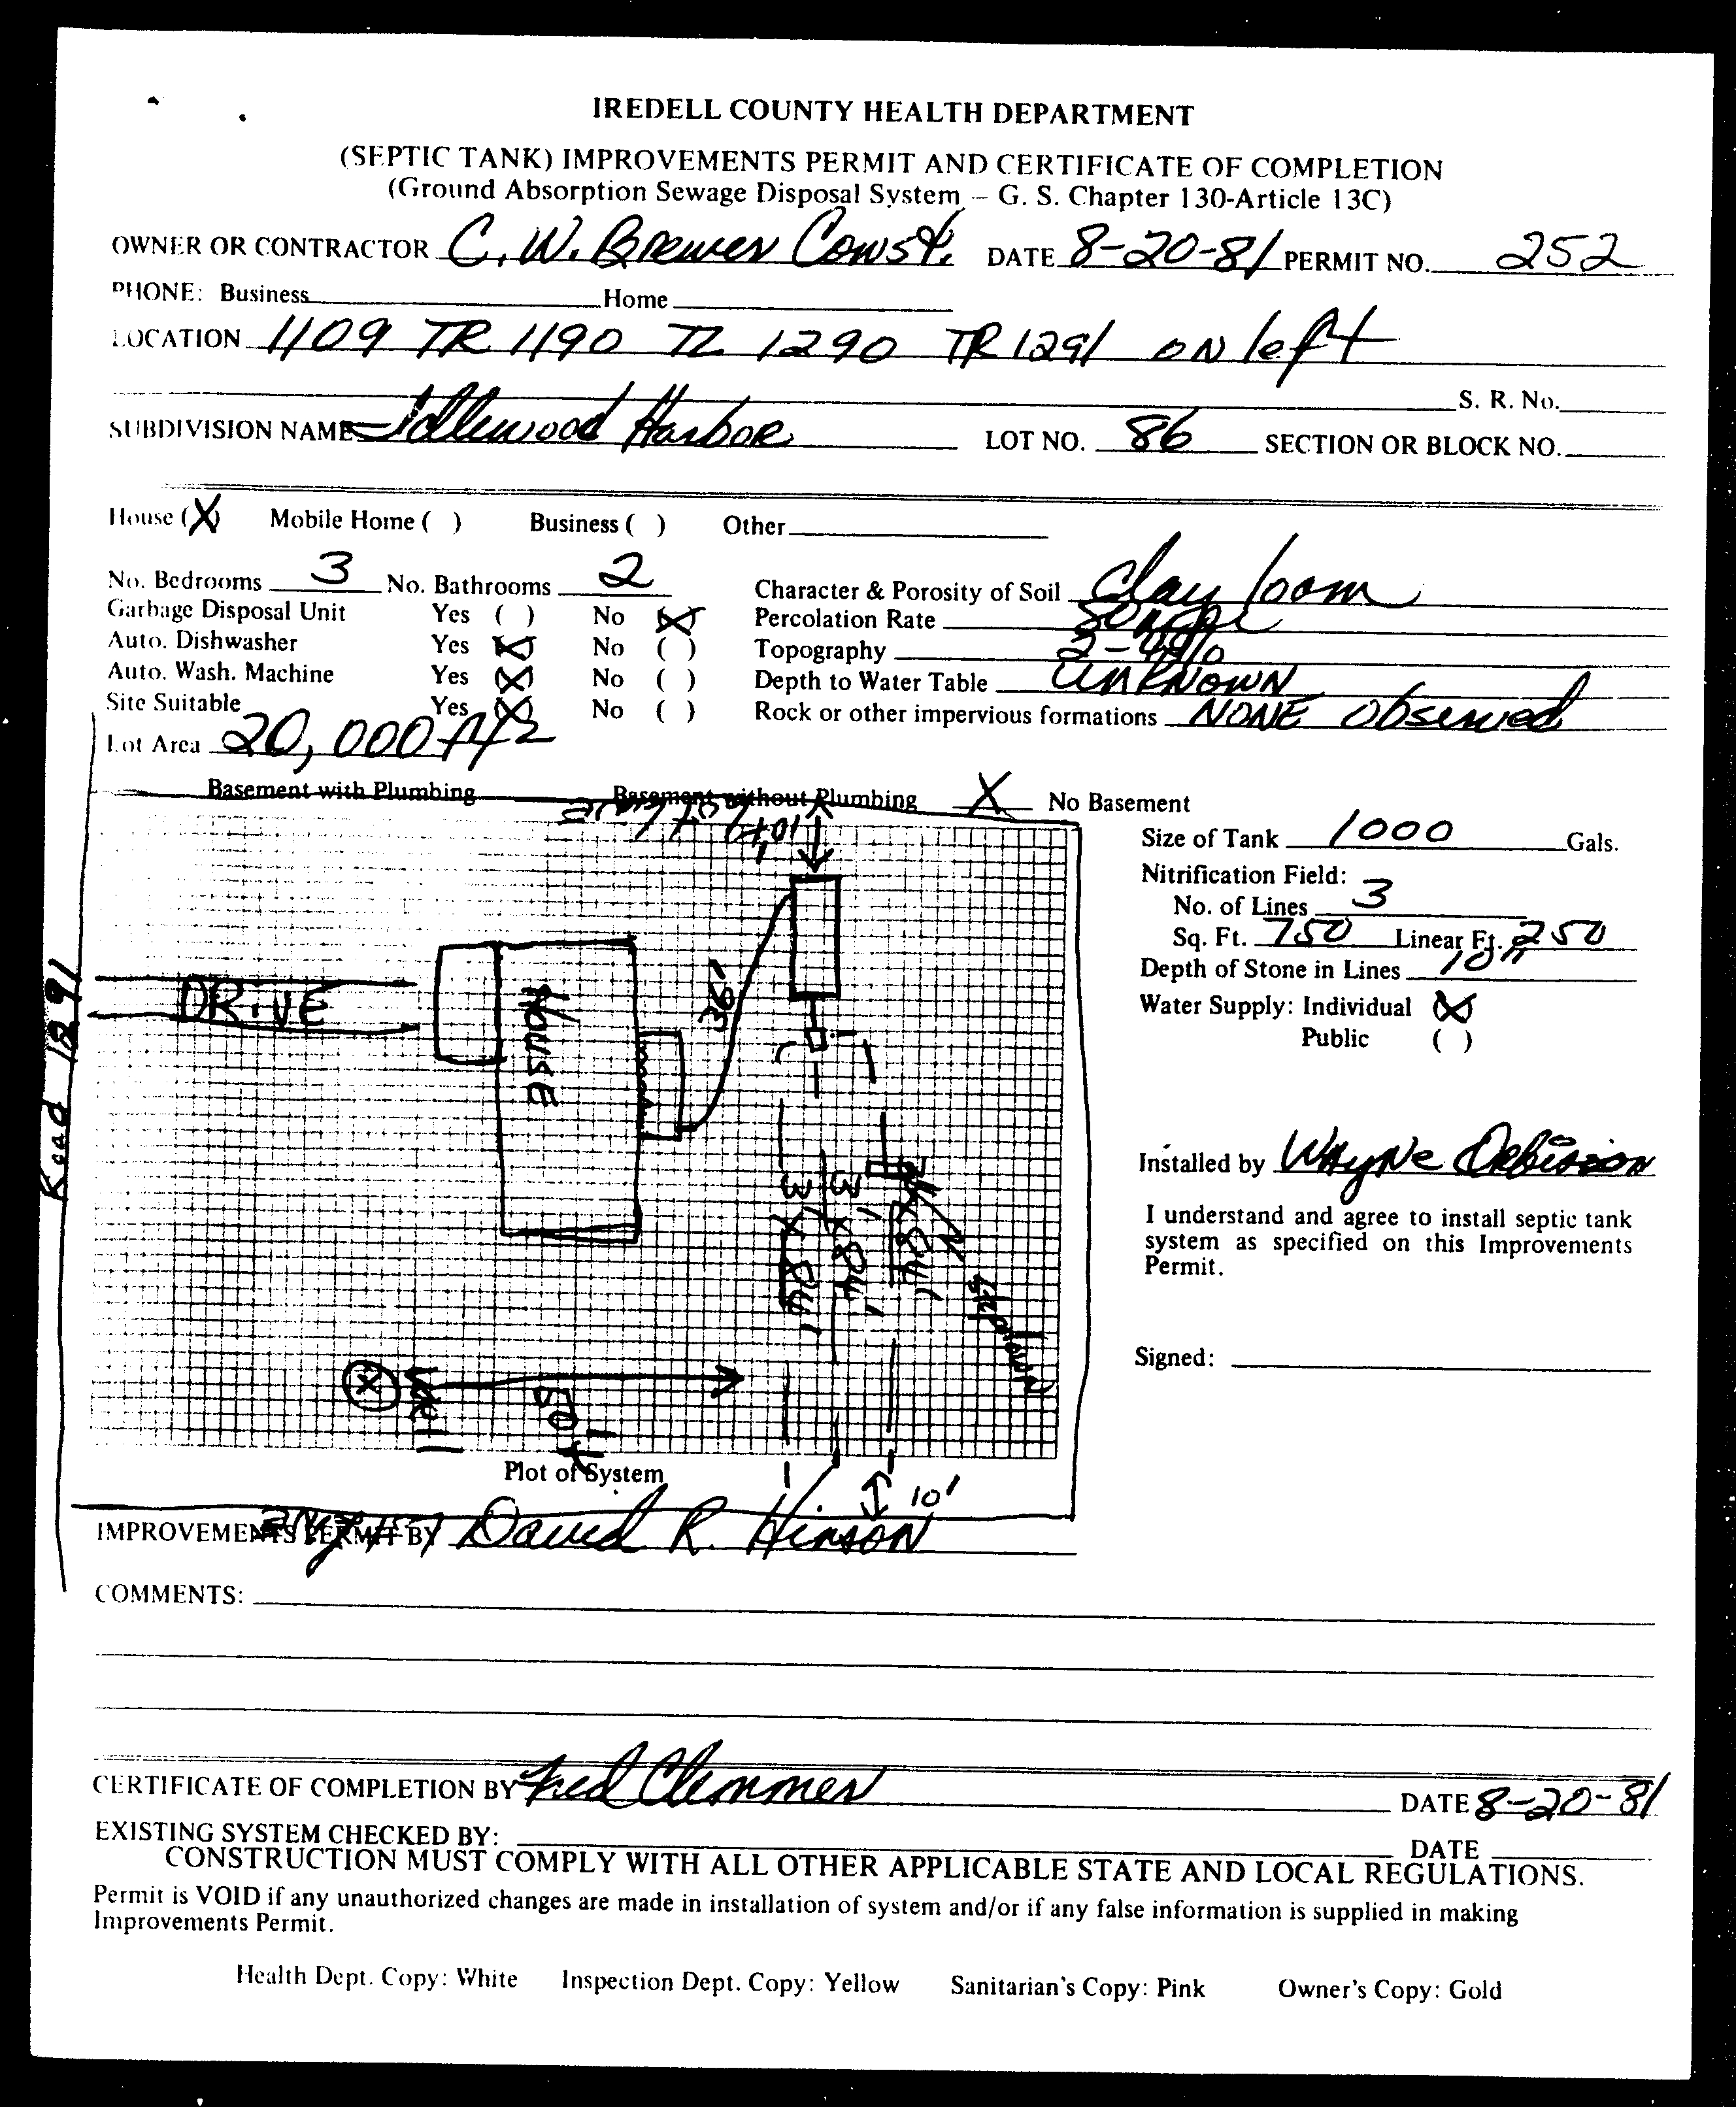 IREDELL COUNTY HEALTH DEPARTMENT
(SEPTIC TANK) IMPROVEMENTS PERMIT AND CERTIFICATE OF COMPLETION
(Ground Absorption Sewage Disposal System – G. S. Chapter 130-Article 13C)
OWNER OR CONTRACTOR C. W. Brewer Const. DATE 8-20-81 PERMIT NO. 252
PHONE: Business Home
LOCATION 1109 TR 1190 TL 1290 TR 1291 ON left
S. R. No.
SUBDIVISION NAME Idlewood Harbor LOT NO. 86 SECTION OR BLOCK NO.
House (X) Mobile Home ( ) Business ( ) Other
No. Bedrooms 3 No. Bathrooms 2 Character & Porosity of Soil Clay loam
Garbage Disposal Unit Yes ( ) No (X) Percolation Rate
Auto. Dishwasher Yes (X) No ( ) Topography 2-4%
Auto. Wash. Machine Yes (X) No ( ) Depth to Water Table UNKNOWN
Site Suitable Yes (X) No ( ) Rock or other impervious formations NONE Observed
Lot Area 20,000 ft2
Basement with Plumbing Basement without Plumbing X No Basement
Size of Tank 1000 Gals.
Nitrification Field:
No. of Lines 3
Sq. Ft. 750 Linear Ft. 250
Depth of Stone in Lines 10"
Water Supply: Individual (X)
Public ( )
10'
DRIVE
HOUSE
36'
Road 1291
3' X 84'
3' X 84'
3' X 84'
X
50'
10'
Plot of System
Installed by Wayne
I understand and agree to install septic tank
system as specified on this Improvements
Permit.
Signed:
IMPROVEMENTS PERMIT BY David R. Hinson
COMMENTS:
CERTIFICATE OF COMPLETION BY Fred Clemmer DATE 8-20-81
EXISTING SYSTEM CHECKED BY: DATE
CONSTRUCTION MUST COMPLY WITH ALL OTHER APPLICABLE STATE AND LOCAL REGULATIONS.
Permit is VOID if any unauthorized changes are made in installation of system and/or if any false information is supplied in making
Improvements Permit.
Health Dept. Copy: White Inspection Dept. Copy: Yellow Sanitarian's Copy: Pink Owner's Copy: Gold